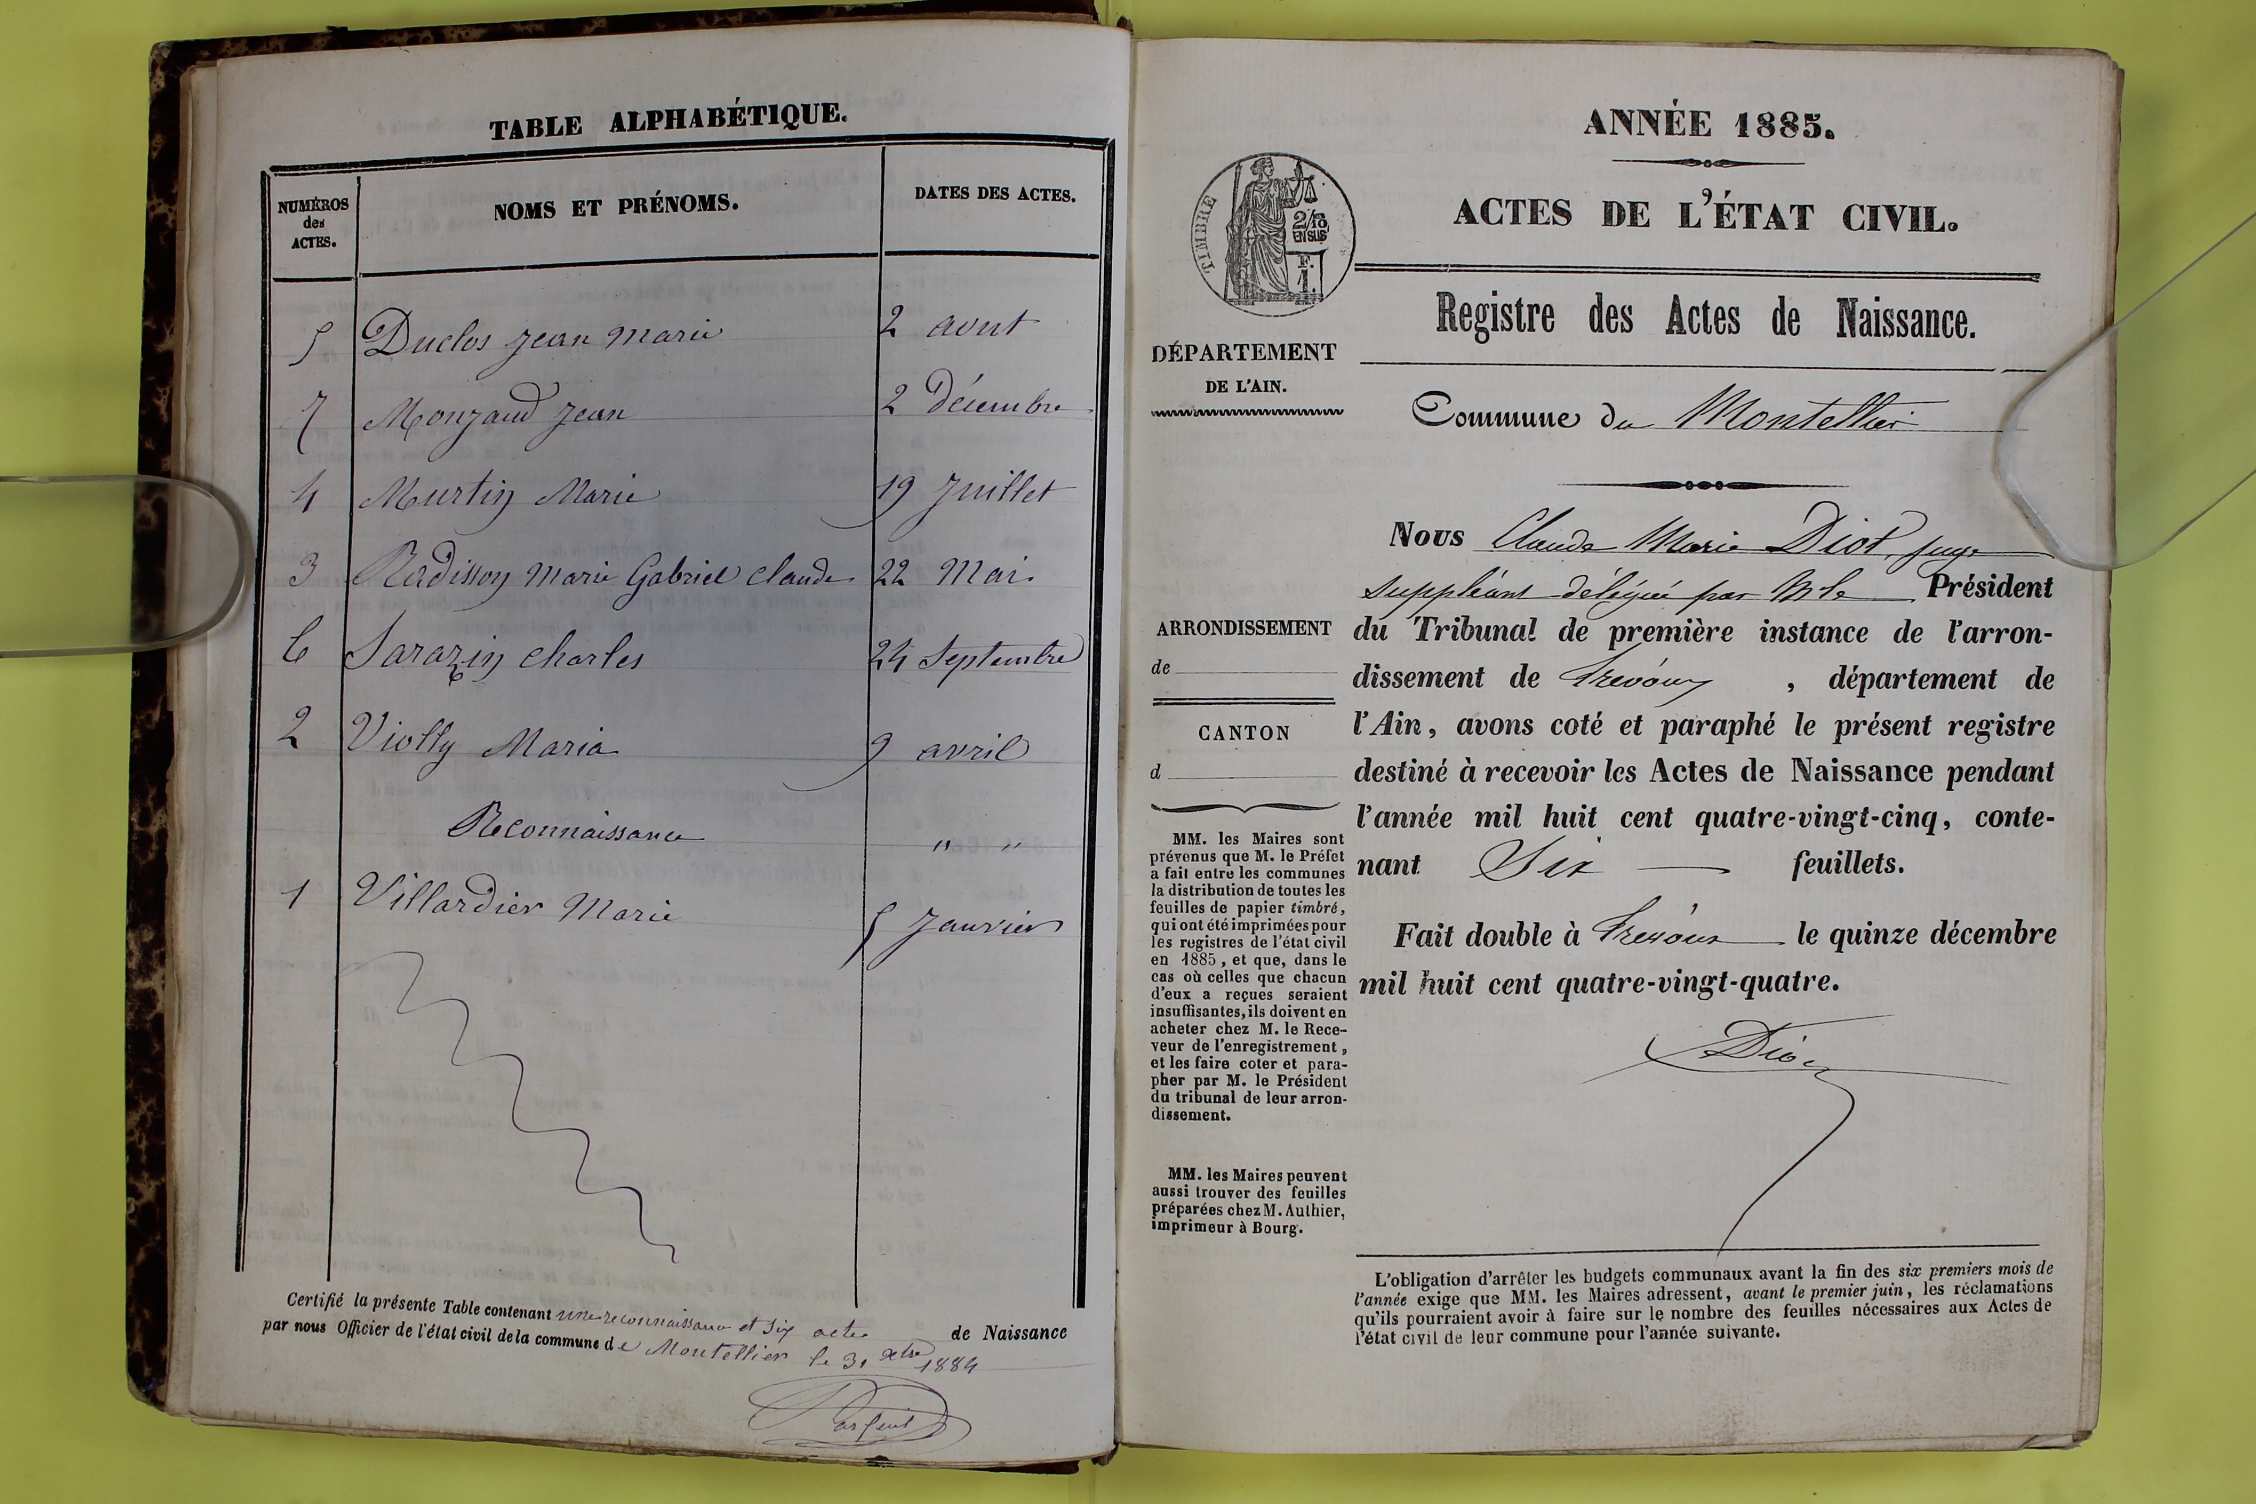 TABLE ALPHABÉTIQUE.
NUMÉROS
des
ACTES.
NOMS ET PRÉNOMS.
DATES DES ACTES.
5 Duclos Jean Marie 2 aout
7 Monjaud Jean 2 Décembre
4 Murtin Marie 19 Juillet
3 Radisson Marie Gabriel Claude 22 Mai
6 Sarazin Charles 24 Septembre
2 Violly Maria 9 avril
Reconnaissance " "
1 Villardier Marie 5 Janvier
Certifié la présente Table contenant une reconnaissance et six actes de Naissance
par nous Officier de l'état civil de la commune de Montellier le 31 xbre 1884
ANNÉE 1885.
ACTES DE L'ÉTAT CIVIL.
TIMBRE
2/10
EN SUS
F.
1.
Registre des Actes de Naissance.
DÉPARTEMENT
DE L'AIN.
Commune du Montellier
Nous Claude Marie Diot, juge
suppléant délégué par Mr le Président
du Tribunal de première instance de l'arron-
dissement de Trévoux, département de
l'Ain, avons coté et paraphé le présent registre
destiné à recevoir les Actes de Naissance pendant
l'année mil huit cent quatre-vingt-cinq, conte-
nant Six feuillets.
Fait double à Trévoux le quinze décembre
mil huit cent quatre-vingt-quatre.
Diot
ARRONDISSEMENT
de
CANTON
d
MM. les Maires sont
prévenus que M. le Préfet
a fait entre les communes
la distribution de toutes les
feuilles de papier timbré,
qui ont été imprimées pour
les registres de l'état civil
en 1885, et que, dans le
cas où celles que chacun
d'eux a reçues seraient
insuffisantes, ils doivent en
acheter chez M. le Rece-
veur de l'enregistrement,
et les faire coter et para-
pher par M. le Président
du tribunal de leur arron-
dissement.
MM. les Maires peuvent
aussi trouver des feuilles
préparées chez M. Authier,
imprimeur à Bourg.
L'obligation d'arrêter les budgets communaux avant la fin des six premiers mois de
l'année exige que MM. les Maires adressent, avant le premier juin, les réclamations
qu'ils pourraient avoir à faire sur le nombre des feuilles nécessaires aux Actes de
l'état civil de leur commune pour l'année suivante.